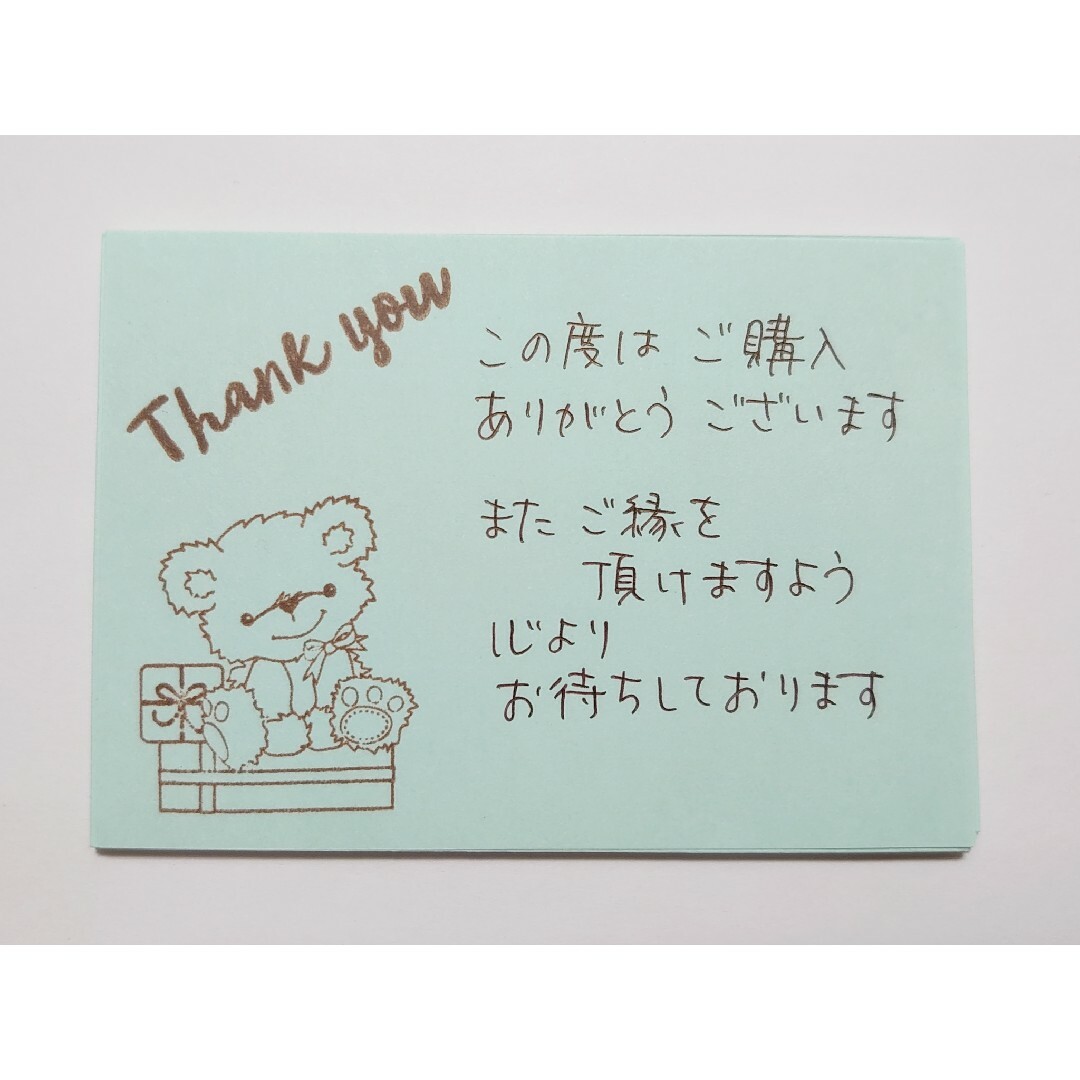 Thank you
この度は ご購入
ありがとう ございます
また ご縁を
頂けますよう
心より
お待ちしております